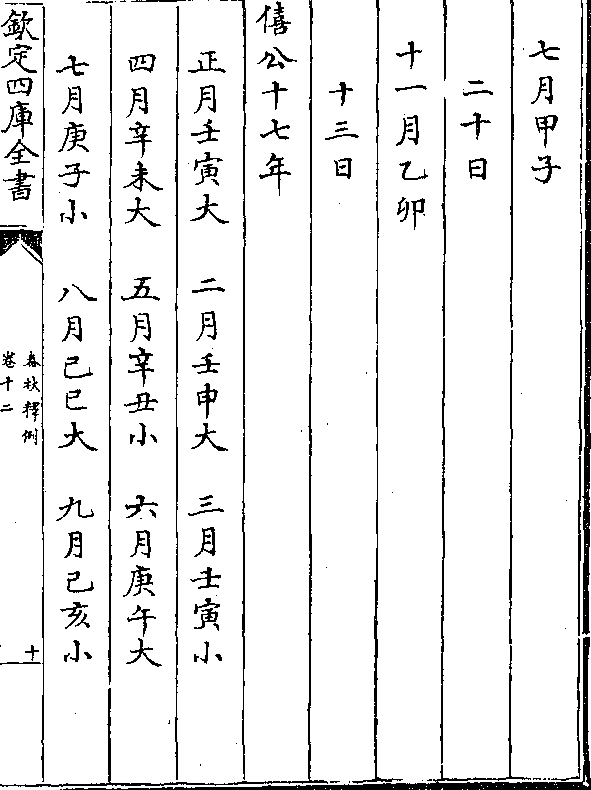 七月甲子
二十日
十一月乙卯
十三日
僖公十七年
正月壬寅大　二月壬申大　三月壬寅小
四月辛未大　五月辛丑小　六月庚午大
七月庚子小　八月己巳大　九月己亥小
欽定四庫全書
春秋釋例
卷十二
十